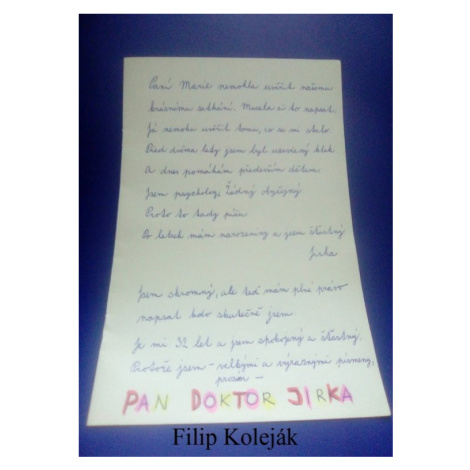 Paní Marie nemohla uvěřit našemu
krásnému setkání. Musela si to napsat.
Já nemohu uvěřit tomu, co se mi stalo.
Před dvěma lety jsem byl uzavřený kluk
A dnes pomáhám především dětem
Jsem psycholog, Žádný obyčejný
Proto to tady píšu
Po letech mám narozeniny a jsem šťastný
Jirka
Jsem skromný, ale teď mám plné právo
napsat kdo skutečně jsem
Je mi 32 let a jsem spokojený a šťastný.
Protože jsem – velkými a výraznými písmeny,
prosím –
PAN DOKTOR JIRKA
Filip Koleják